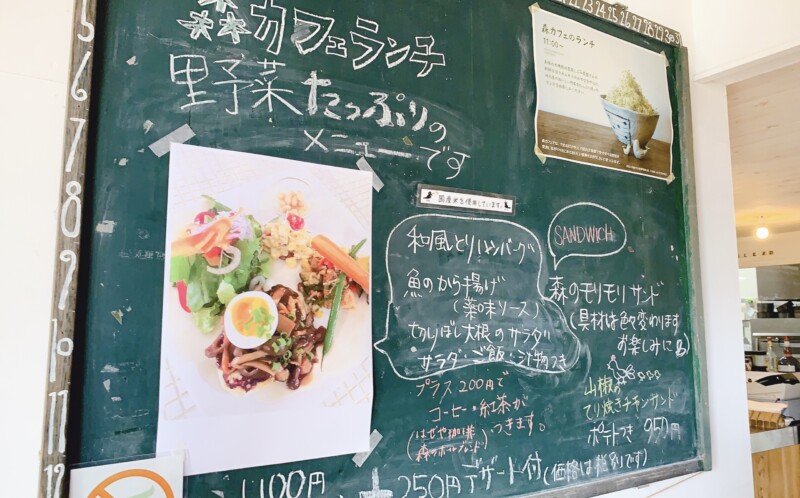 森カフェランチ
野菜たっぷりの
メニューです
国産米を使用しています。
和風とりハンバーグ
魚のから揚げ
(薬味ソース)
切りぼし大根のサラダ
サラダ・ご飯・汁物つき
プラス200円で
コーヒー・紅茶が
つきます。
(はぜや珈琲
森のポートブレンド)
1100円 + 250円デザート付(価格は税別です)
SANDWICH
森のモリモリサンド
(具材は色々変わります
お楽しみに)
山椒の
てり焼きチキンサンド
ポテトつき 950円
森カフェのランチ
11:00～
5
6
7
8
9
10
11
12
22 23 24 25 26 27 28 29 30 31